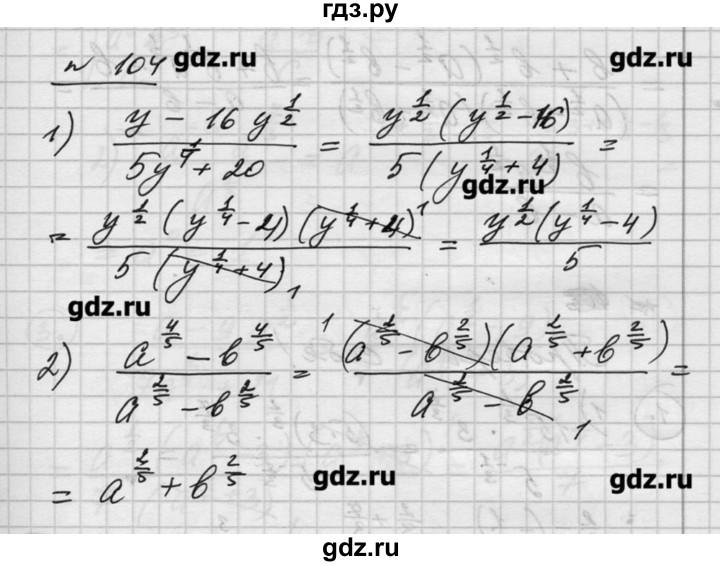 гдз.ру
№ 104 gdz.ru gdz.ru
1) (y - 16y^(1/2)) / (5y^(1/4) + 20) = (y^(1/2) (y^(1/2) - 16)) / (5 (y^(1/4) + 4)) =
gdz.ru
= (y^(1/2) (y^(1/4) - 4) (y^(1/4) + 4) 1) / (5 (y^(1/4) + 4) 1) = (y^(1/2) (y^(1/4) - 4)) / 5
gdz.ru
2) (a^(4/5) - b^(4/5)) / (a^(2/5) - b^(2/5)) = (1 (a^(2/5) - b^(2/5)) (a^(2/5) + b^(2/5))) / (a^(2/5) - b^(2/5) 1) =
= a^(2/5) + b^(2/5) gdz.ru gdz.ru
gdz.ru